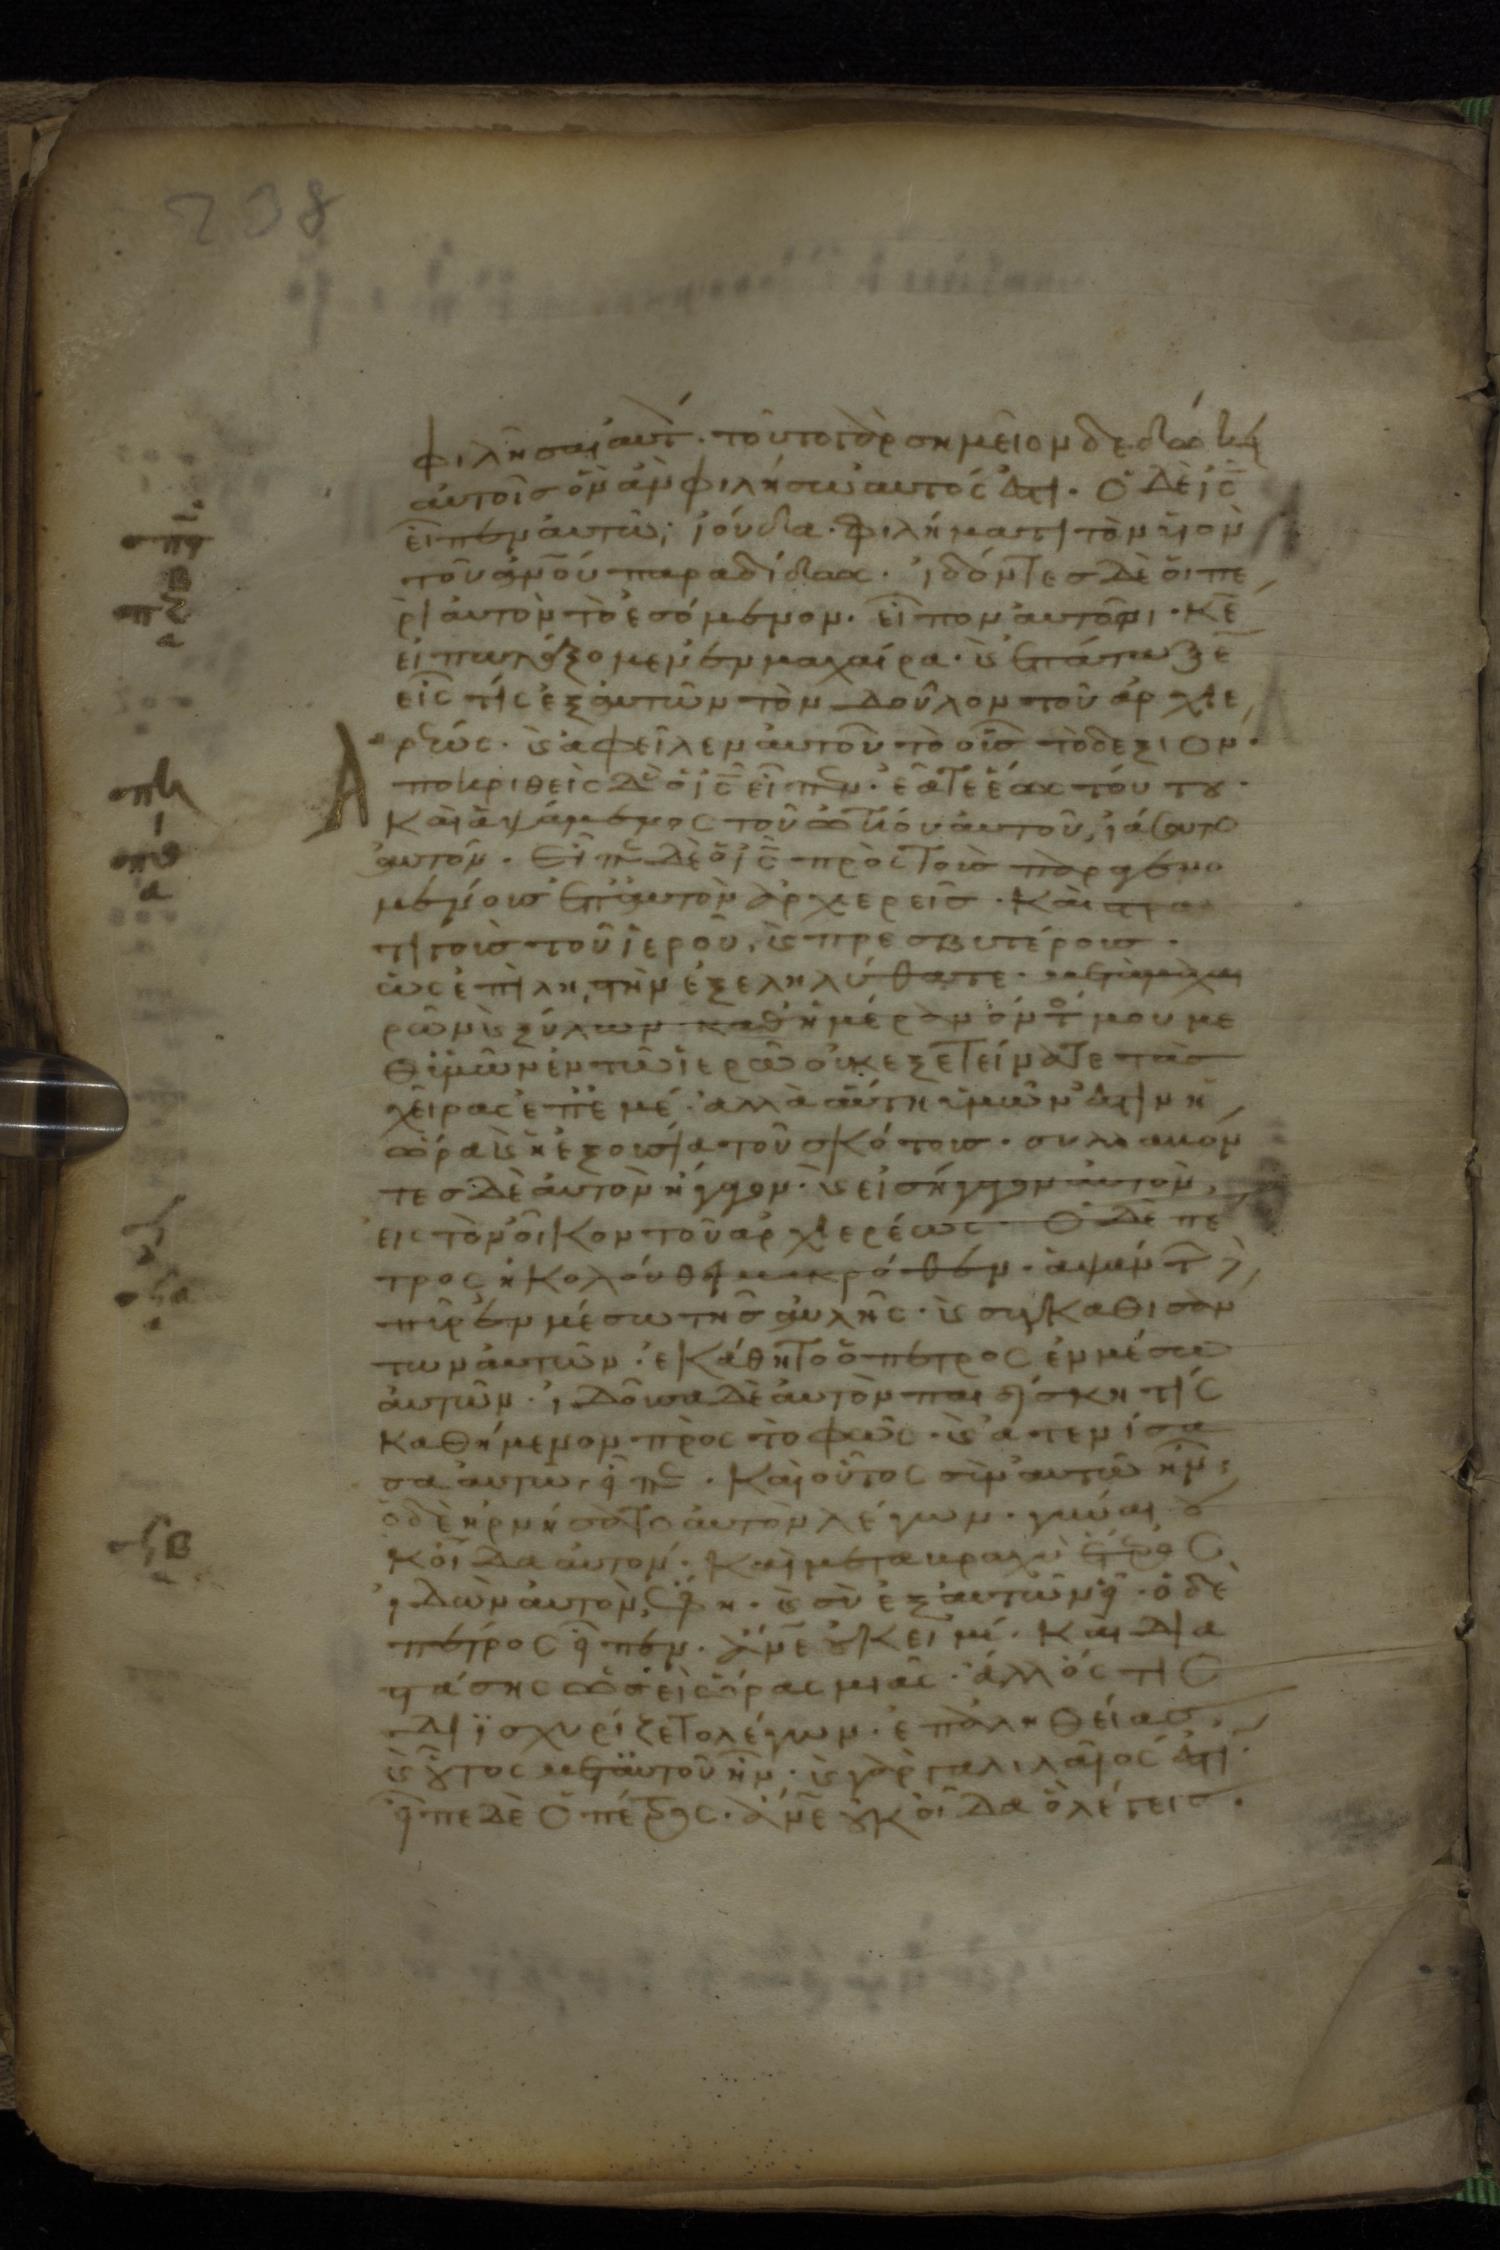 238
φιλῆσαι αυτ̀. τοῦτο γὰρ σημεῖον δεδώκει
αὐτοῖς ὃν ἂν φιλήσω αὐτός ἐστι. Ὁ δὲ ις̅
εἶπεν αὐτῶ, ἰούδα. φιλήματι τὸν ὑιὸν
τοῦ ανο̅υ παραδίδως. ἰδόντες δὲ ὁι πε
ρὶ ἀυτὸν τὸ ἐσόμενον. εἶπον αὐτῶ. κε̅
εἰ πατάξομεν ἐν μαχαίρα. ϗ ἐπάταξε̅
εἷς τίς ἐξ ἀυτῶν τὸν δοῦλον τοῦ ἀρχιε
ρέως. ϗ ἀφεῖλεν ἀυτοῦ τὸ οὖς τὸ δεξιον.
Αποκριθεὶς δὲ ὁ ις̅ εἶπεν. ἐᾶτε ἕως τούτου.
Καὶ ἁψάμενος τοῦ ὠτίου ἀυτοῦ, ἰάσατο
ἀυτόν. Εἶπε δὲ ὁ ις̅ πρὸς τοὺς παραγενο
μένους ἐπ᾽ ἀυτὸν ἀρχιερεῖς. Καὶ στρα
τηγοὺς τοῦ ἱεροῦ, ϗ πρεσβυτέρους.
ὡς ἐπὶ ληστὴν ἐξεληλύθατε. μετὰ μαχαι
ρῶν ϗ ξύλων. καθ᾽ ἡμέραν ὄντος μου με
θ᾽ ὑμῶν ἐν τῶ ἱερῶ οὐκ εξετείνατε τὰς
χεῖρας ἐπ᾽ ἐμέ. ἀλλὰ ἁύτη ὑμῶν ἐστιν ἡ
ὥρα ϗ ἡ ἐξουσία τοῦ σκότους. συλλαβόν
τες δὲ ἀυτὸν ἤγαγον. ϗ εἰσήγαγον ἀυτὸν,
εἰς τὸν οἶκον τοῦ ἀρχιερέως. Ὁ δὲ πε
τρος ἠκολούθει μακρόθεν. ἁψάντ δὲ
πῦρ ἐν μέσω τῆς ἀυλῆς. ϗ συγκαθισαν
των ἀυτῶν. ἐκάθητο ὁ πέτρος ἐν μέσω
ἀυτῶν. ἰδοῦσα δὲ ἀυτὸν παιδίσκη τίς
καθήμενον πρὸς τὸ φῶς. ϗ ἀτενίσα
σα ἀυτῶ, εἶπε. Καὶ οὗτος σὺν ἀυτῶ ἦν.
ὁ δὲ ἠρνήσατο ἀυτὸν λέγων. γύναι ὀυ
κ οἶδα ἀυτον. Καὶ μετα βραχὺ ἕτερος
ἰδὼν ἀυτὸν, ἔφη. ϗ σὺ ἐξ ἀυτῶν εἶ. ὁ δὲ
πέτρος εἶπεν. ἄνε̅ ὀυκ εἰμί. Καὶ δια
στάσης ὡσεὶ ὥρας μιᾶς. ἄλλός τις
διϊσχυρίζετο λέγων. ἐπ᾽ ἀληθείας,
ϗ οὗτος μετ᾽ ἀυτοῦ ἦν. ϗ γὰρ γαλιλαῖος ἐστι.
εἶπε δὲ ὁ πέτρος. ἄνε̅ ὀυκ οἶδα ὃ λέγεις.